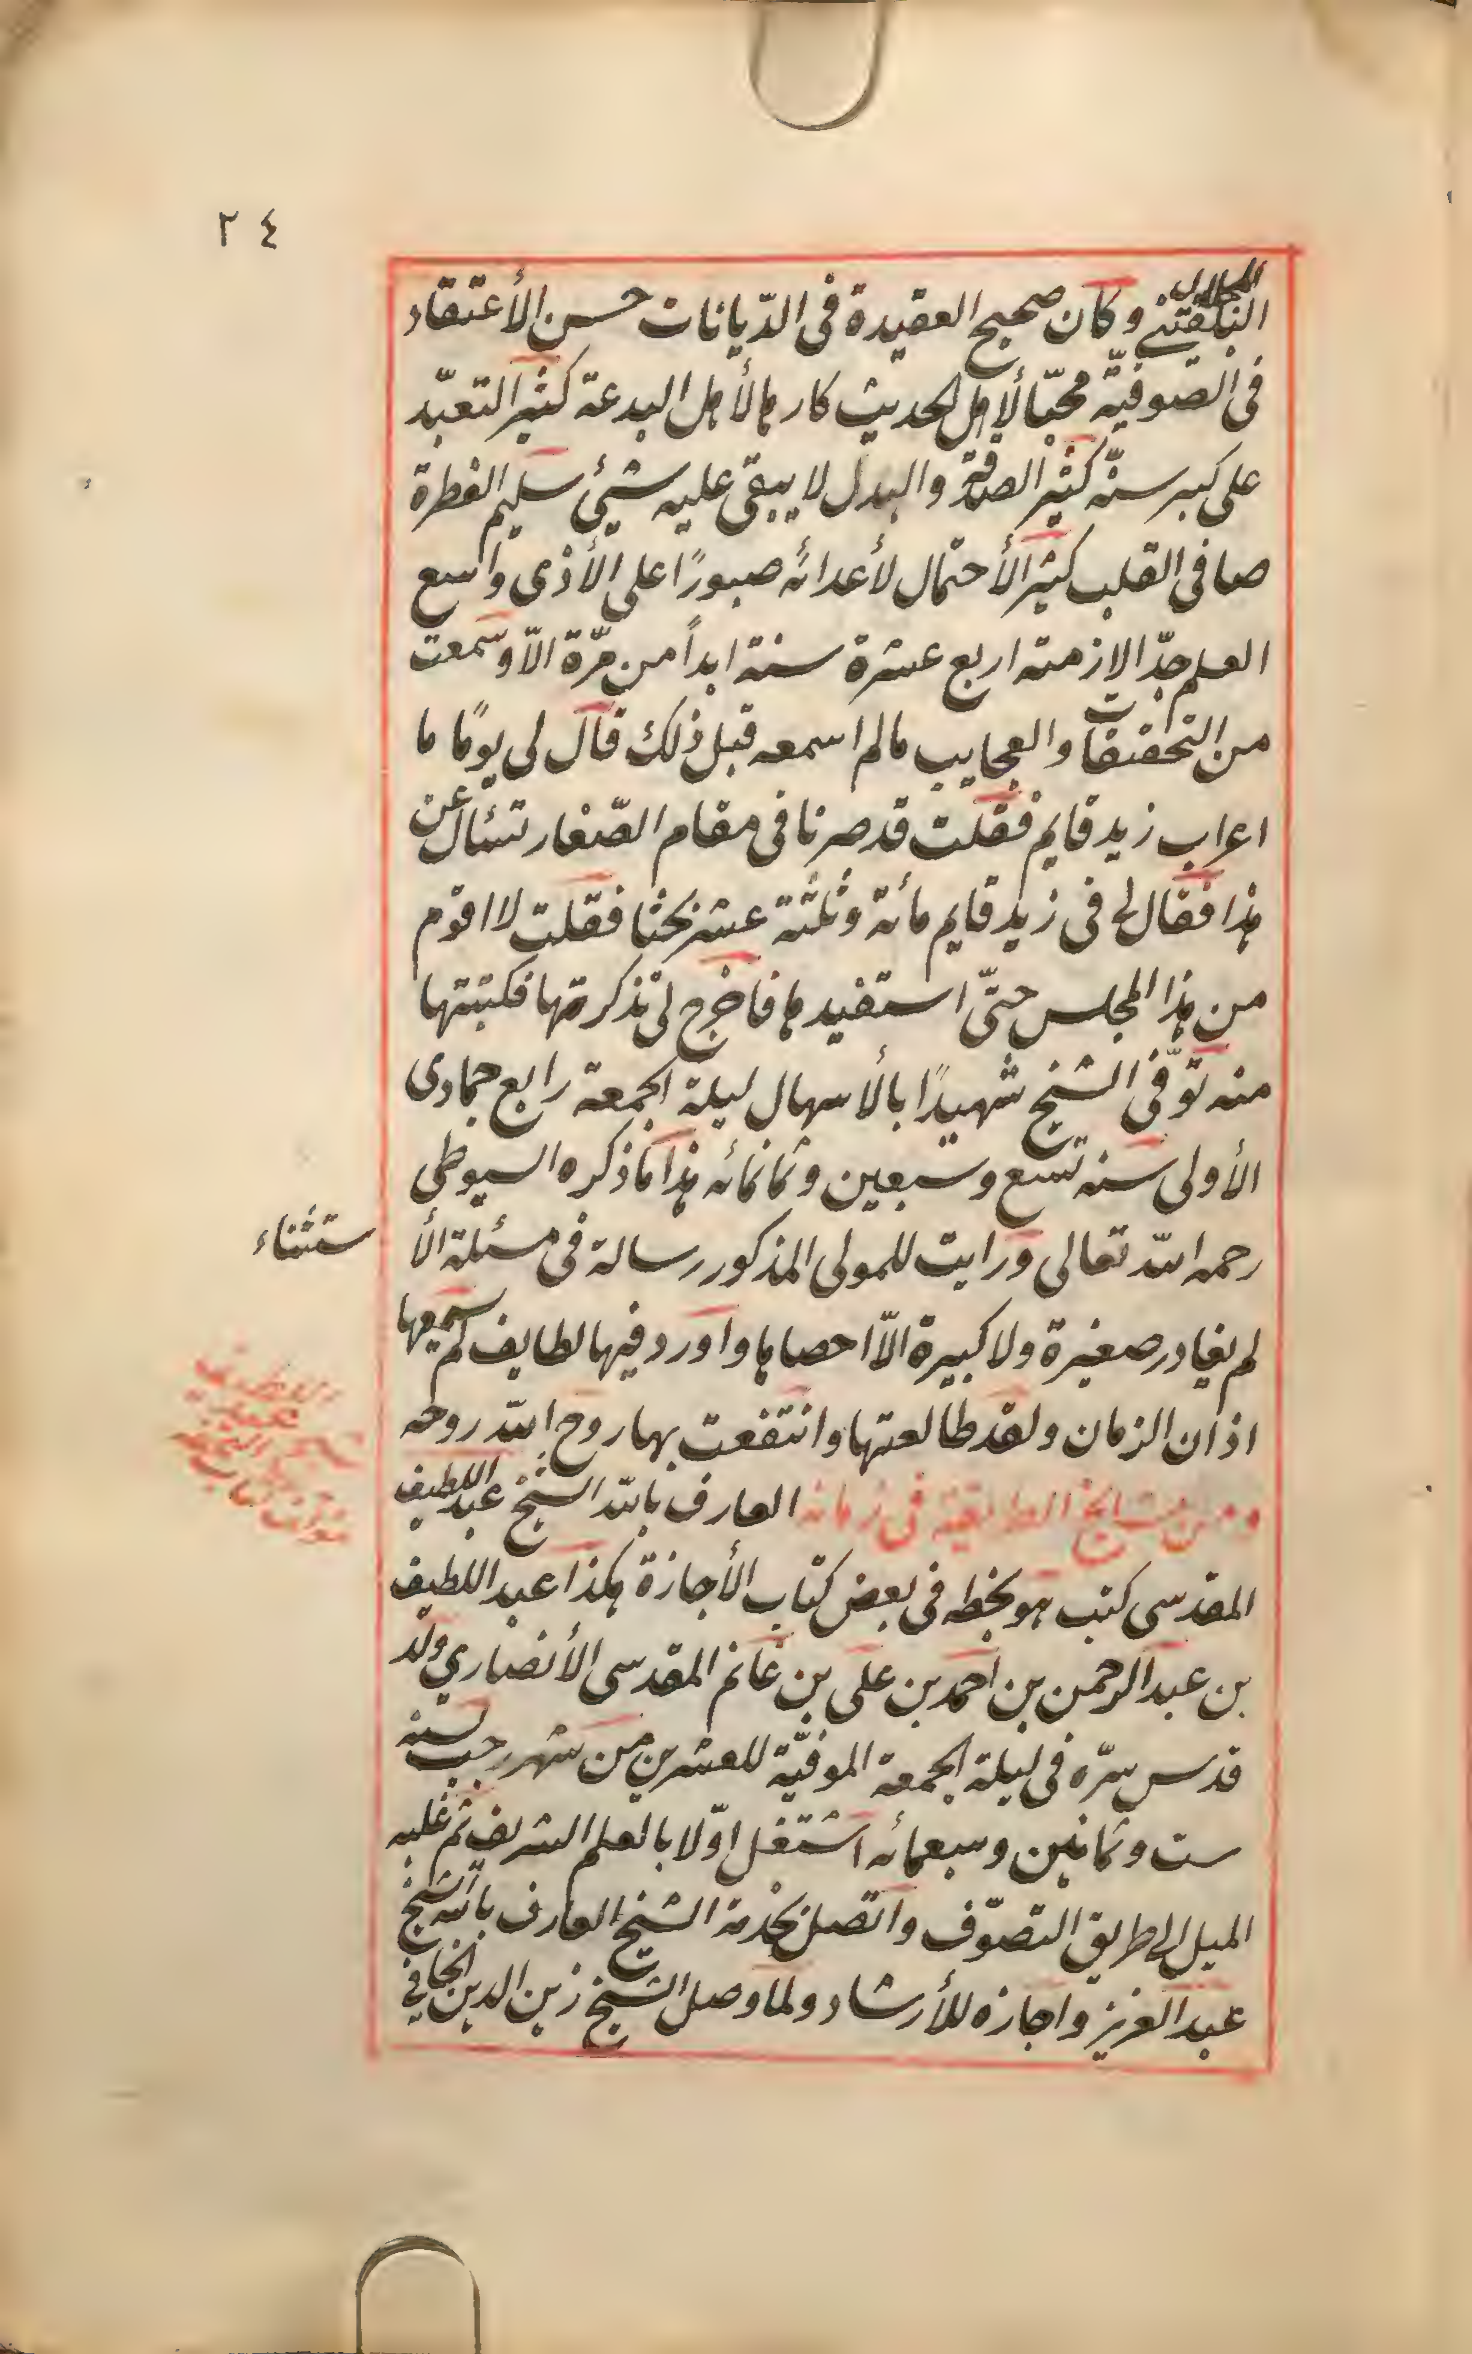 ٢٤
البلقينى وكان صحيح العقيدة فى الدّيانات حسن الأعتقاد
فى الصّوفيّة محبّا لأهل الحديث كارها لأهل البدعة كثير التعبّد
على كبر سنّه كثير الصدقة والبدل لا يبقى عليه شيئ سليم الفطرة
صافى القلب كثير الأحتمال لأعدائه صبورًا على الأذى واسع
العلم جدّا لازمته اربع عشرة سنة ابداً من مرّة الاّ وسمعت
من التحقيقات والعجايب مالم اسمعه قبل ذلك قال لى يومًا ما
اعراب زيد قايم فقلت قد صرنا فى مقام الصّغار نسئال عن
هذا فقال لى فى زيد قايم مأئة وثلثة عشر بحثا فقلت لا اقوم
من هذا المجلس حتّى استفيدها فاخرج لى تذكرتها فكتبتها
منه توّفى الشيخ شهيدًا بالأسهال ليلة الجمعة رابع جمادى
الأولى سنه تسع وسبعين وثمانمائه هذا ما ذكره السيوطى
رحمه اللّه تعالى ورايت للمولى المذكور رسالة فى مسئلة الأ
ستثناء
لم يغادر صغيرة ولا كبيرة الاّ احصاها واورد فيها لطايف لم يسمعها
اذان الزمان ولقد طالعتها وانتفعت بها روح اللّه روحه
ومن مشايخ الطريقة فى زمانه العارف باللّه الشيخ عبد اللطيف
المقدسى كتب هو بخطه فى بعض كتاب الأجازة هكذا عبد اللطيف
بن عبد الرحمن بن احمد بن على بن غانم المقدسى الأنصاري ولد
قدس سرّه فى ليلة الجمعة الموفيّة للعشرين من شهر رجب سنه
ست وثمانين وسبعمائه اشتغل اوّلا بالعلم الشريف ثم غلبه
الميل الى طريق التصوّف واتّصل بخدمة الشيخ العارف باللّه الشيخ
عبد العزيز واجازه للأرشاد ولما وصل الشيخ زين الدين الخافى